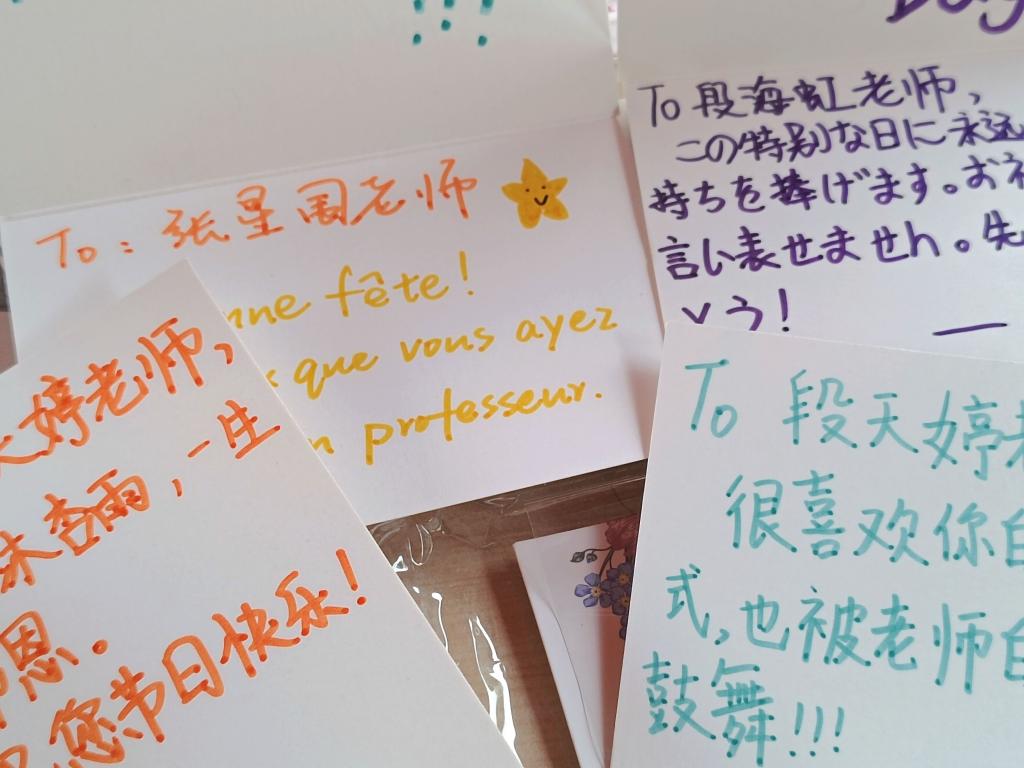 To: 张星围老师
nne fête!
que vous ayez
n professeur.
To 段海虹老师,
この特别な日に永远
持ちを捧げます。お礼
言い表せません。先
とう!
婷老师,
杏雨,一生
恩.
您节日快乐!
To 段天婷老
很喜欢你自
式,也被老师自
鼓舞!!!